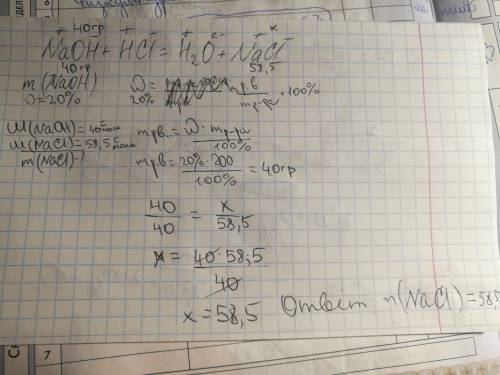 40гр x
NaOH + HCl = H₂O + NaCl
40гр 58,5
m (NaOH)
ω = 20%
ω = mр.в / mр-ра · 100%
20%
M(NaOH) = 40 г/моль
M(NaCl) = 58,5 г/моль
m(NaCl) - ?
mр.в. = ω · mр-ра / 100%
mр.в = 20% · 200 / 100% = 40гр
40 / 40 = x / 58,5
x = 40 · 58,5 / 40
x = 58,5
Ответ m(NaCl) = 58,5
7